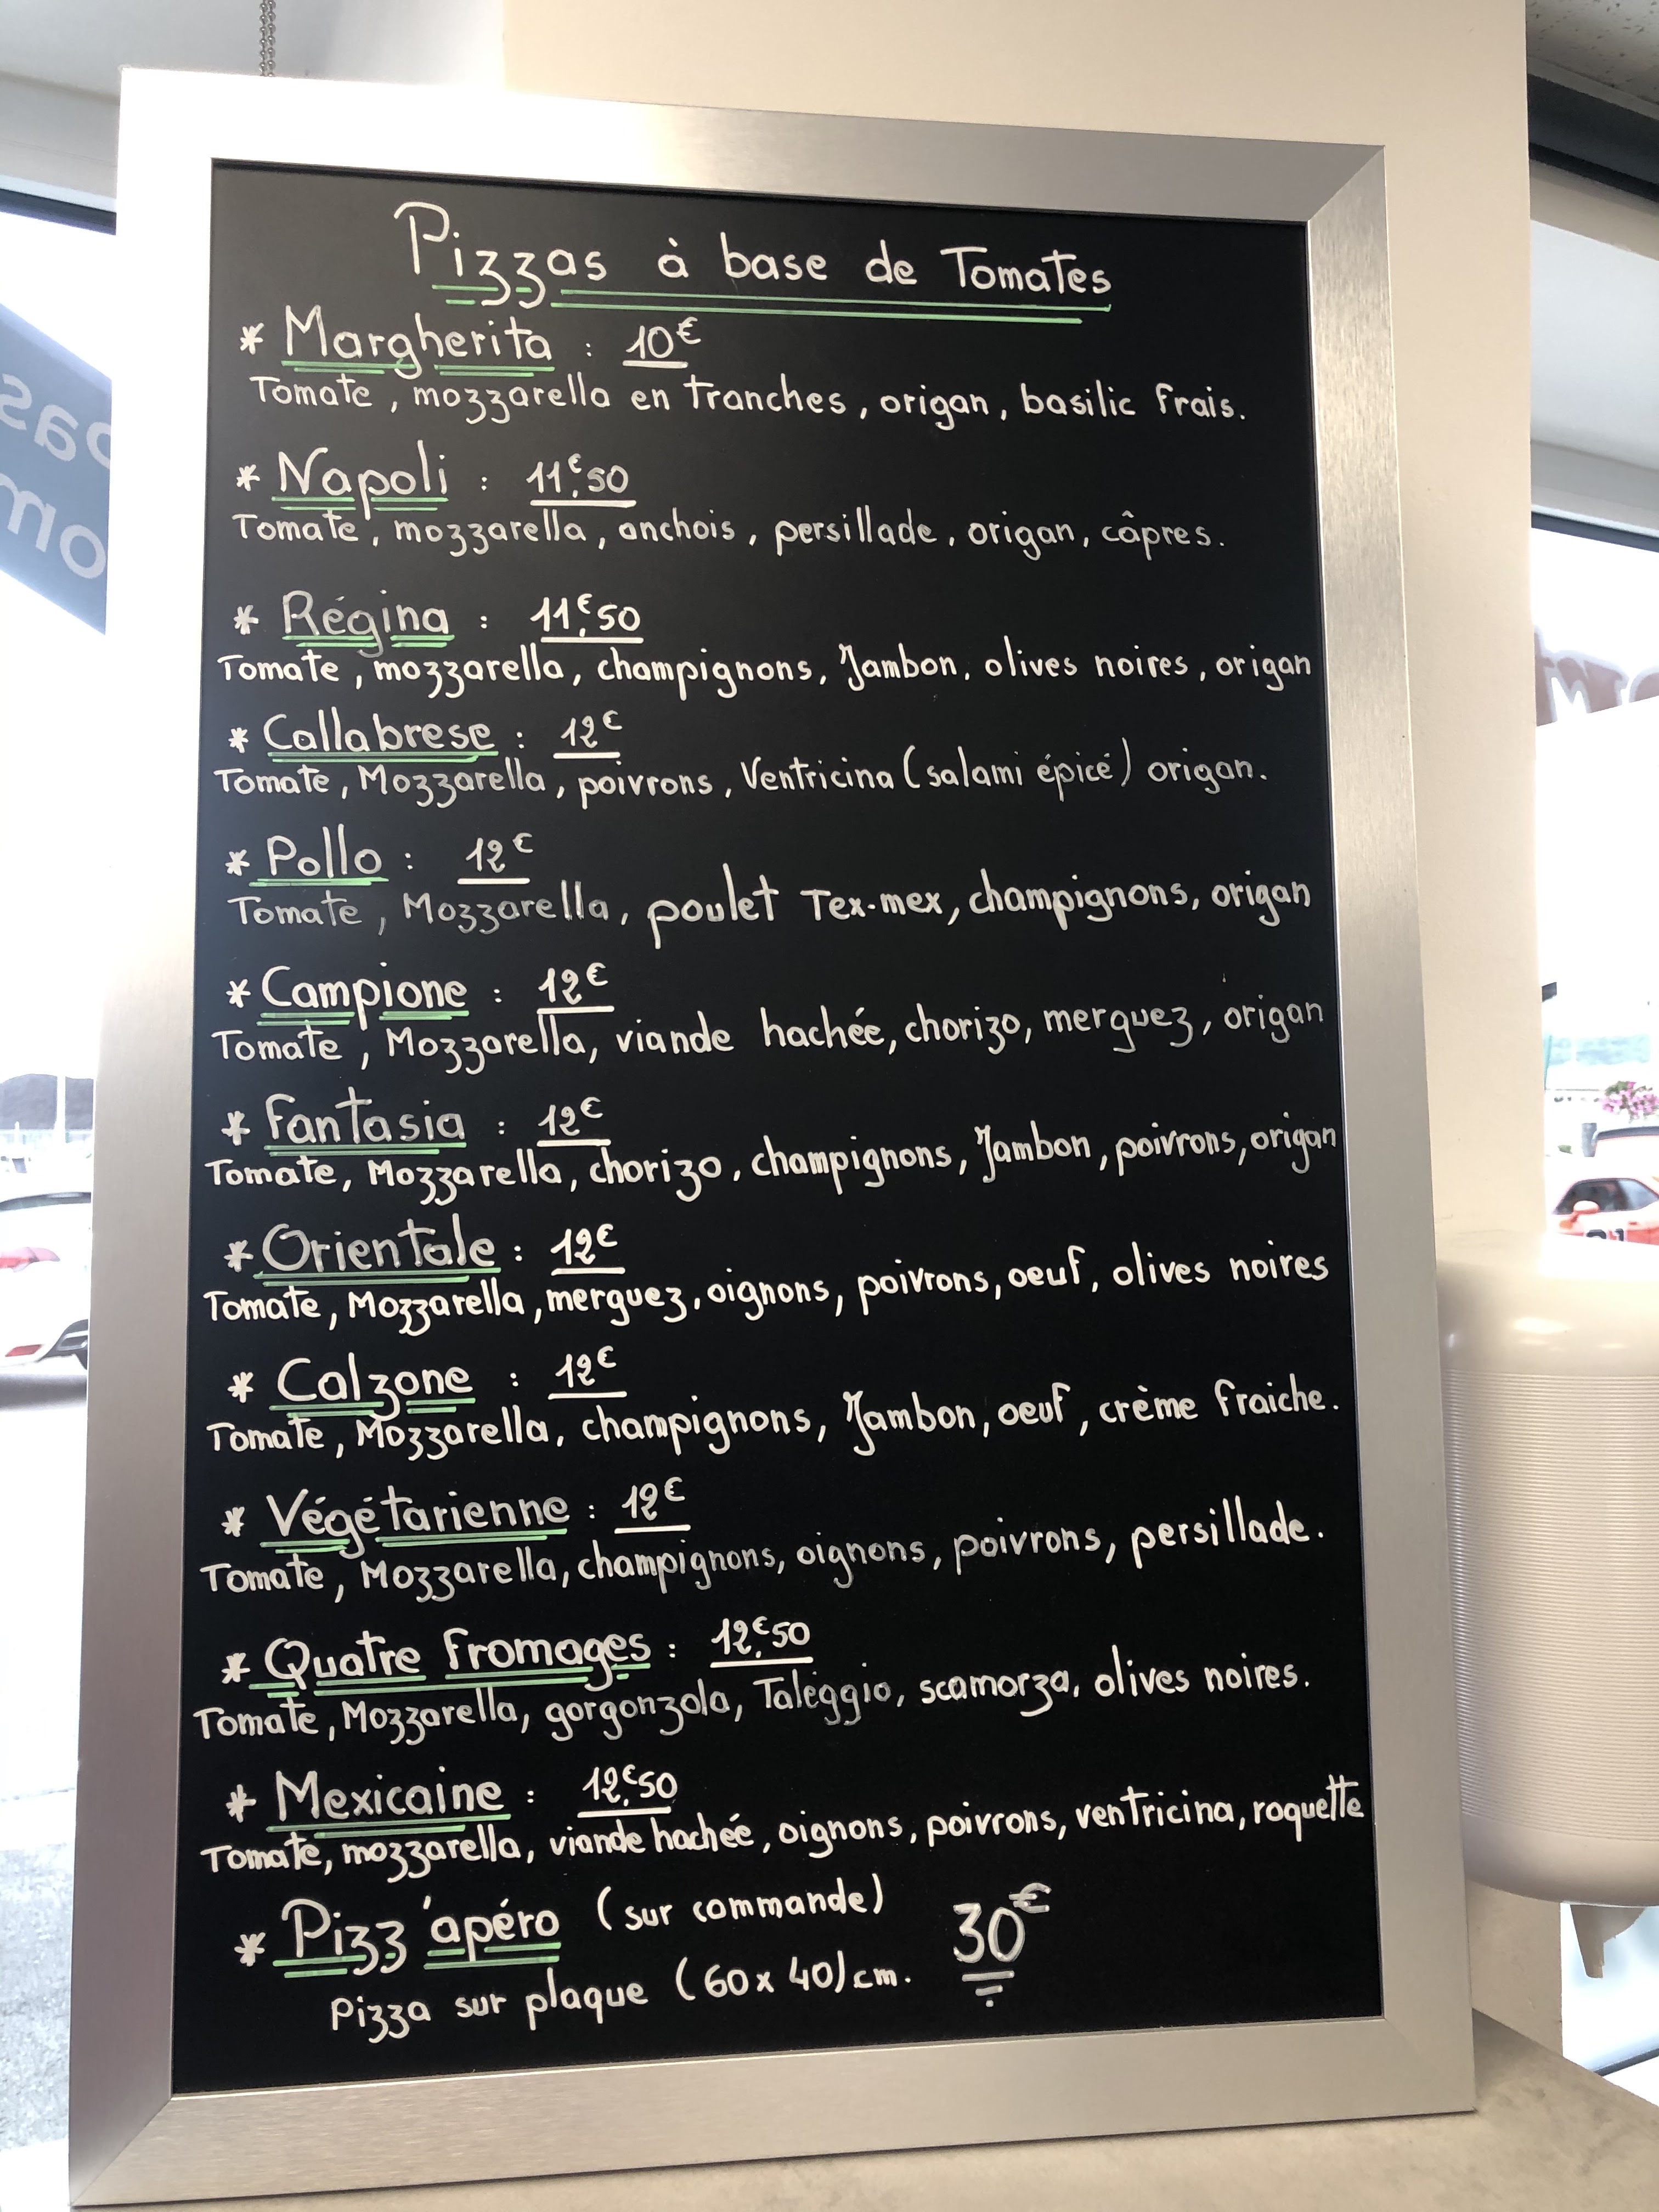 Pizzas à base de Tomates
* Margherita : 10€
Tomate, mozzarella en tranches, origan, basilic frais.
* Napoli : 11€,50
Tomate, mozzarella, anchois, persillade, origan, câpres.
* Régina : 11€,50
Tomate, mozzarella, champignons, Jambon, olives noires, origan
* Callabrese : 12€
Tomate, Mozzarella, poivrons, Ventricina (salami épicé) origan.
* Pollo : 12€
Tomate, Mozzarella, poulet Tex-mex, champignons, origan
* Campione : 12€
Tomate, Mozzarella, viande hachée, chorizo, merguez, origan
* Fantasia : 12€
Tomate, Mozzarella, chorizo, champignons, Jambon, poivrons, origan
* Orientale : 12€
Tomate, Mozzarella, merguez, oignons, poivrons, oeuf, olives noires
* Calzone : 12€
Tomate, Mozzarella, champignons, Jambon, oeuf, crème fraiche.
* Végétarienne : 12€
Tomate, Mozzarella, champignons, oignons, poivrons, persillade.
* Quatre fromages : 12€,50
Tomate, Mozzarella, gorgonzola, Taleggio, scamorza, olives noires.
* Mexicaine : 12€,50
Tomate, mozzarella, viande hachée, oignons, poivrons, ventricina, roquette
* Pizz'apéro (sur commande) 30€
Pizza sur plaque (60 x 40) cm.